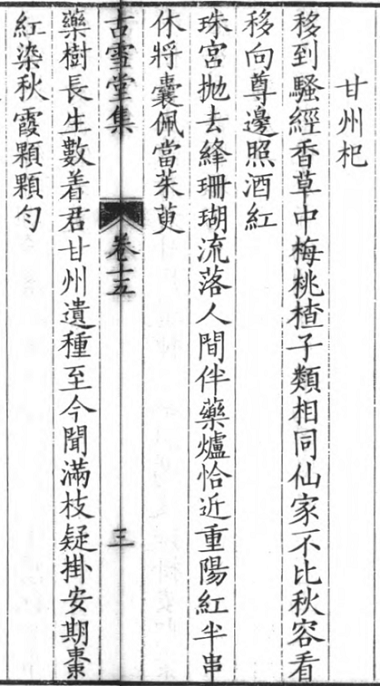 甘州杞
移到騷經香草中梅桃楂子類相同仙家不比秋容看
移向尊邊照酒紅
珠宮拋去絳珊瑚流落人間伴藥爐恰近重陽紅半串
休將囊佩當茱萸
古雪堂集 卷十五 三
藥樹長生數着君甘州遺種至今聞滿枝疑掛安期棗
紅染秋霞顆顆勻